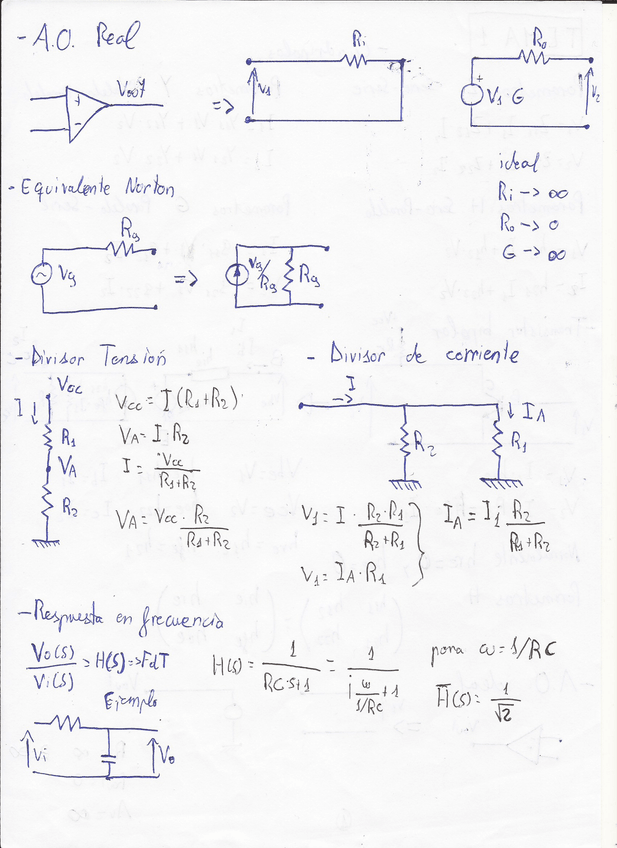 - A.O. Real
+
-
=>
Ri
V1
Ro
+
V1·G
V2
ideal
Ri -> ∞
Ro -> 0
G -> ∞
- Equivalente Norton
Rg
Vg
=>
Vg/Rg
Rg
- Divisor Tensión
Vcc
I
R1
VA
R2
Vcc = I (R1+R2)
VA = I · R2
I = Vcc/(R1+R2)
VA = Vcc · R2/(R1+R2)
- Divisor de corriente
I
R2
IA
R1
V1 = I · R2·R1/(R2+R1)
V1 = IA · R1
IA = I1 R2/(R1+R2)
- Respuesta en frecuencia
Vo(s)/Vi(s) => H(s) => FdT
H(s) = 1/(RC·s+1) = 1/(j ω/(1/RC) + 1)
para ω = 1/RC
H(s) = 1/√2
Ejemplo
Vi
Vo